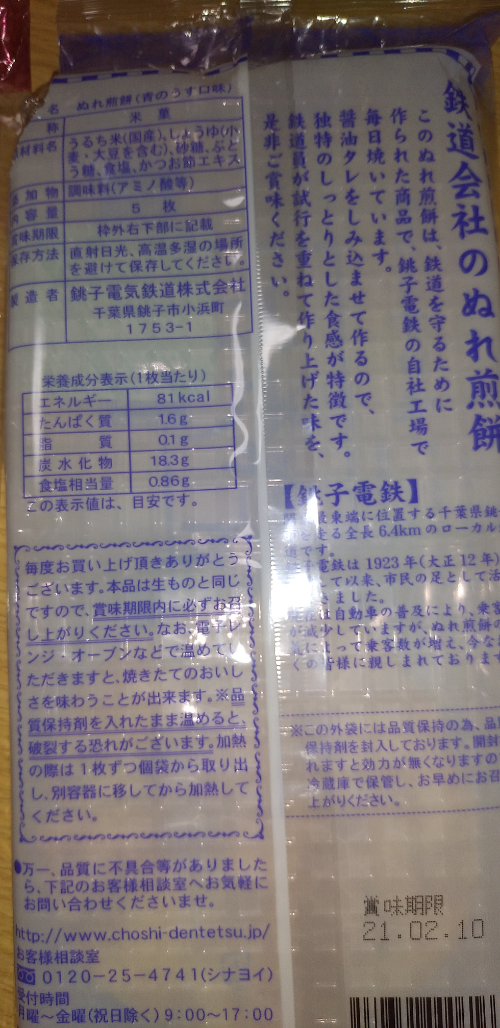 名 ぬれ煎餅(青のうす口味)
称 米菓
材料名 うるち米(国産)、しょうゆ(小
麦・大豆を含む)、砂糖、ぶど
う糖、食塩、かつお節エキス
添加物 調味料(アミノ酸等)
内容量 5 枚
賞味期限 枠外右下部に記載
保存方法 直射日光、高温多湿の場所
を避けて保存してください。
製造者 銚子電気鉄道株式会社
千葉県銚子市小浜町
1753-1
栄養成分表示(1枚当たり)
エネルギー 81kcal
たんぱく質 1.6g
脂質 0.1g
炭水化物 18.3g
食塩相当量 0.86g
この表示値は、目安です。
毎度お買い上げ頂きありがとう
ございます。本品は生ものと同じ
ですので、賞味期限内に必ずお召
し上がりください。なお、電子レ
ンジ・オーブンなどで温めてい
ただきますと、焼きたてのおいし
さを味わうことが出来ます。※品
質保持剤を入れたまま温めると、
破裂する恐れがございます。加熱
の際は1枚ずつ個袋から取り出
し、別容器に移してから加熱して
ください。
●万一、品質に不具合等がありました
ら、下記のお客様相談室へお気軽に
お問い合わせくださいませ。
http://www.choshi-dentetsu.jp/
お客様相談室
0120-25-4741(シナヨイ)
受付時間
月曜~金曜(祝日除く)9:00~17:00
鉄道会社のぬれ煎餅
このぬれ煎餅は、鉄道を守るために
作られた商品で、銚子電鉄の自社工場で
毎日焼いています。
醤油タレをしみ込ませて作るので、
独特のしっとりとした食感が特徴です。
鉄道員が試行を重ねて作り上げた味を、
是非ご賞味ください。
【銚子電鉄】
最東端に位置する千葉県銚
を走る全長6.4kmのローカル
です。
電鉄は1923年(大正12年)
して以来、市民の足として活
きました。
は自動車の普及により、乗客
が減少していますが、ぬれ煎餅の
によって乗客数が増え、今な
くの皆様に親しまれておりま
※この外袋には品質保持の為、品
保持剤を封入しております。開封
れますと効力が無くなりますの
冷蔵庫で保管し、お早めにお召
上がりください。
賞味期限
21.02.10